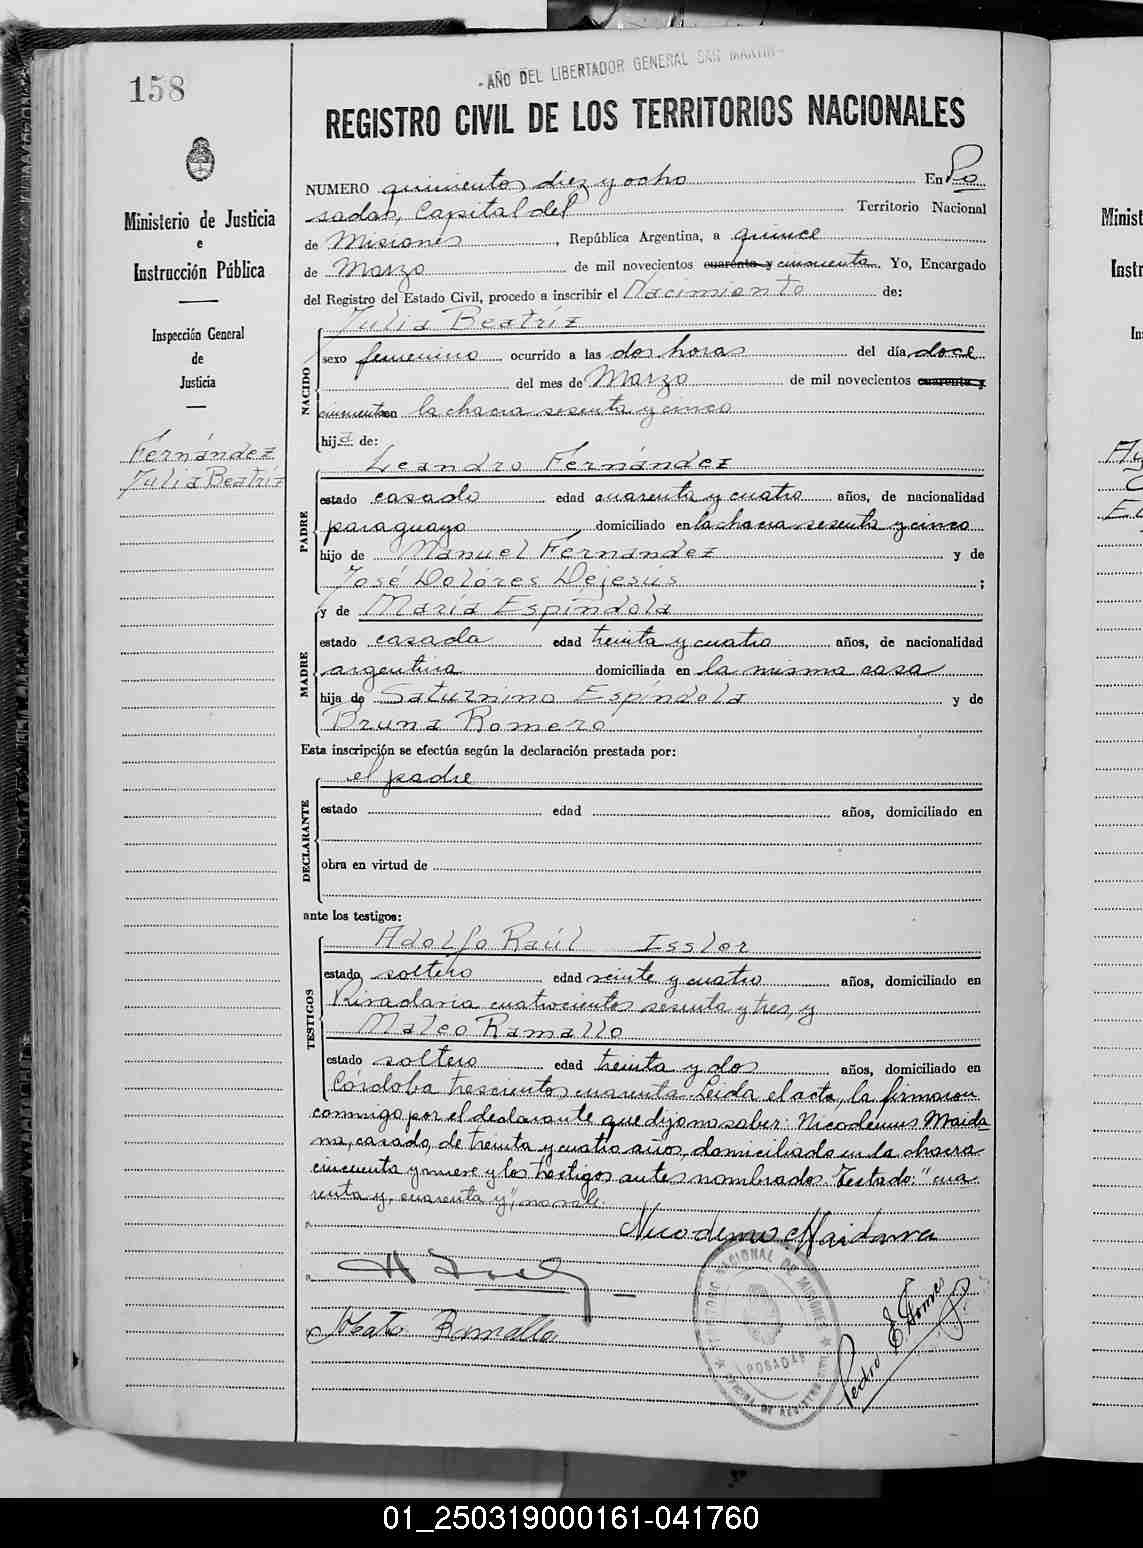 158
- AÑO DEL LIBERTADOR GENERAL SAN MARTIN -
REGISTRO CIVIL DE LOS TERRITORIOS NACIONALES
Ministerio de Justicia
e
Instrucción Pública
Inspección General
de
Justicia
Fernández
Julia Beatríz
NUMERO quinientos diez y ocho En Po
sadas, Capital del Territorio Nacional
de Misiones, República Argentina, a quince
de Marzo de mil novecientos cuarenta y cincuenta. Yo, Encargado
del Registro del Estado Civil, procedo a inscribir el Nacimiento de:
Julia Beatríz
NACIDO
sexo femenino ocurrido a las dos horas del día doce
del mes de Marzo de mil novecientos cuarenta y
cincuenta en la chacra sesenta y cinco
hija de:
Leandro Fernández
PADRE
estado casado edad cuarenta y cuatro años, de nacionalidad
paraguayo domiciliado en la chacra sesenta y cinco
hijo de Manuel Fernández y de
José Dolóres Dejesús ;
y de María Espíndola
MADRE
estado casada edad treinta y cuatro años, de nacionalidad
argentina domiciliada en la misma casa
hija de Saturnino Espíndola y de
Bruna Romero
Esta inscripción se efectúa según la declaración prestada por:
el padre
DECLARANTE
estado edad años, domiciliado en
obra en virtud de
ante los testigos:
Adolfo Raúl Issler
TESTIGOS
estado soltero edad veinte y cuatro años, domiciliado en
Rivadavia cuatrocientos sesenta y tres, y
Mateo Ramallo
estado soltero edad treinta y dos años, domiciliado en
Córdoba trescientos cuarenta. Leida el acta, la firmaron
conmigo por el declarante que dijo no saber: Nicodemus Maida-
na, casado, de treinta y cuatro años, domiciliado en la chacra
cincuenta y nueve y los testigos antes nombrados. Testado: "cua
renta y, cuarenta y", no vale.
Nicodemus Maidana
Mateo Ramallo
TERRITORIO NACIONAL DE MISIONES
POSADAS
OFICINA DE REGISTRO CIVIL
Pedro E.
01_250319000161-041760
Minist
Instr
In